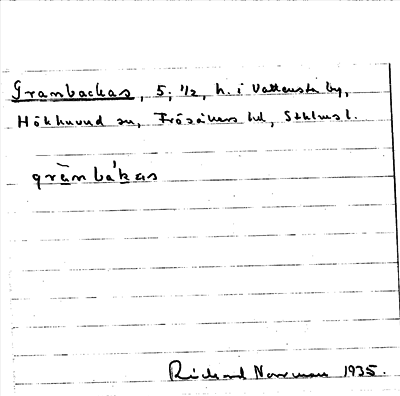 Grambackas, 5; 1/2, h. i Vattensta by,
Hökhuvud sn, Frösåkers hd, Sthlms l.
gràmbákas
Richard Norrman 1935.